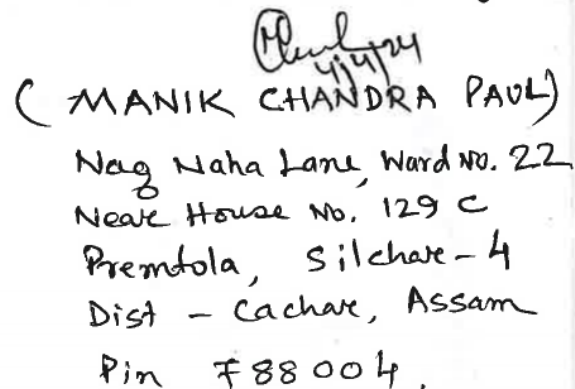 4/4/24
( MANIK CHANDRA PAUL)
Nag Naha Lane, Ward No. 22
Near House No. 129 C
Premtola, Silchar - 4
Dist - Cachar, Assam
Pin 788004.